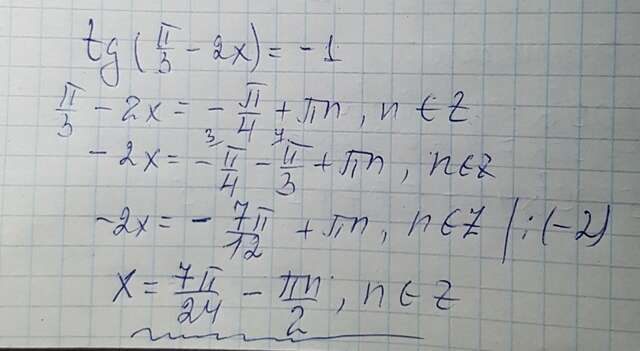 tg(π/3 - 2x) = -1
π/3 - 2x = - π/4 + πn, n ∈ Z
-2x = - ³π/4 - ⁴π/3 + πn, n ∈ Z
-2x = - 7π/12 + πn, n ∈ Z | : (-2)
x = 7π/24 - πn/2, n ∈ Z